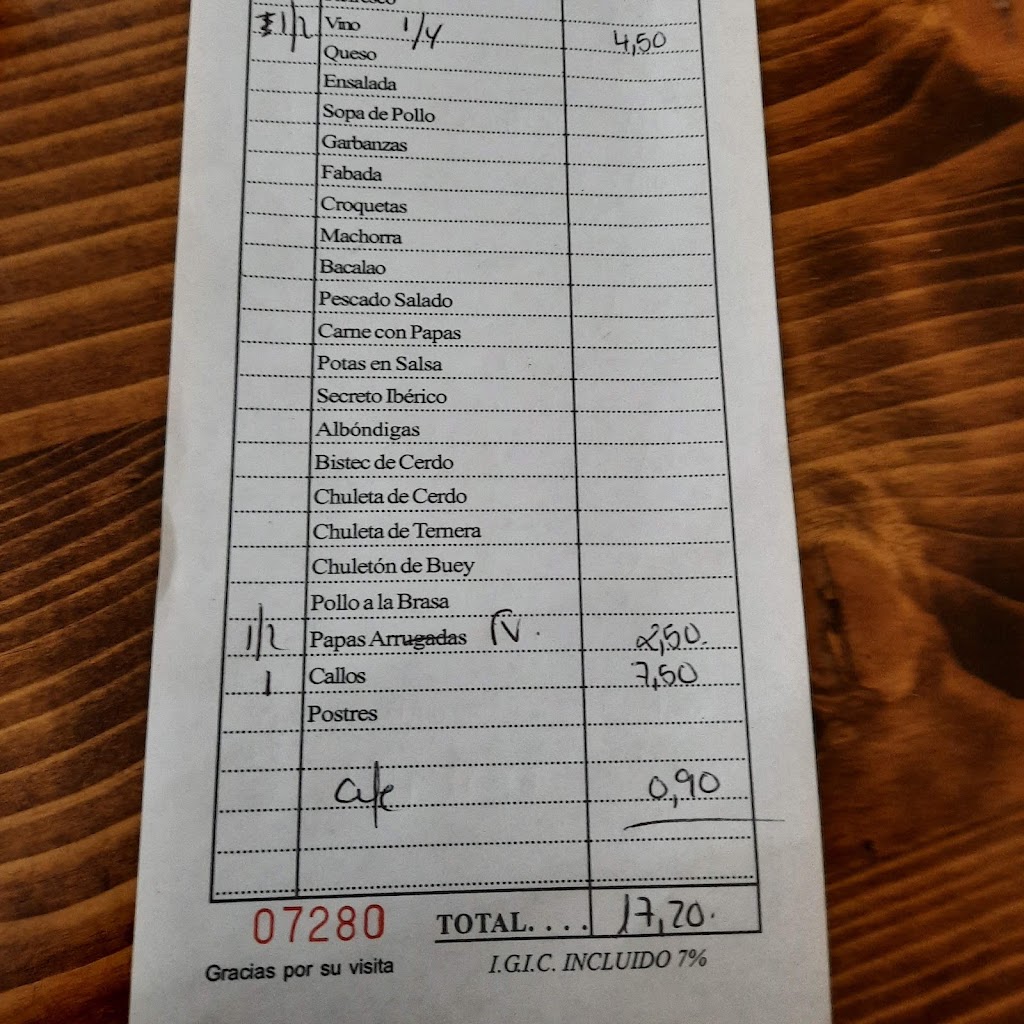 1/2 Vino 1/4 4,50
Queso
Ensalada
Sopa de Pollo
Garbanzas
Fabada
Croquetas
Machorra
Bacalao
Pescado Salado
Carne con Papas
Potas en Salsa
Secreto Ibérico
Albóndigas
Bistec de Cerdo
Chuleta de Cerdo
Chuleta de Ternera
Chuletón de Buey
Pollo a la Brasa
1/2 Papas Arrugadas 2,50.
1 Callos 7,50
Postres
Cafe 0,90
07280 TOTAL.... 17,20.
Gracias por su visita I.G.I.C. INCLUIDO 7%